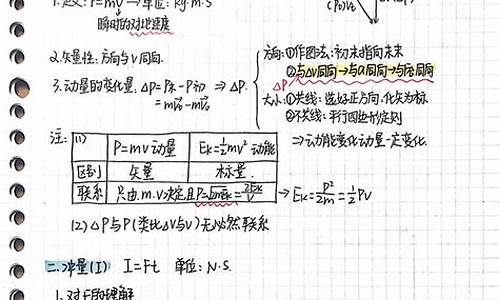 1.定义: P=mv → 单位: kg·m·s
瞬时的对地速度
2.矢量性: 方向与v同向.
3.动量的变化量: ΔP=P末-P初 ⇒ ΔP.
=mv₁-mv₀
方向: ①作图法: 初末指向末
②与Δv同向→与a同向→与F合同向
ΔP
大小: ①共线: 选好正方向, 化矢为标
②不共线: 平行四边形定则
⇒动能变化动量一定变化.
注: (1)
P=mv 动量 Ek=½mv² 动能
区别 矢量 标量.
联系 只由.m.v.决定且P=√2mEk=2Ek/v → Ek=P²/2m=½Pv
(2) ΔP与P (类比Δv与v) 无必然联系
二.冲量(I) I=Ft 单位: N·S.
1.对F的理解